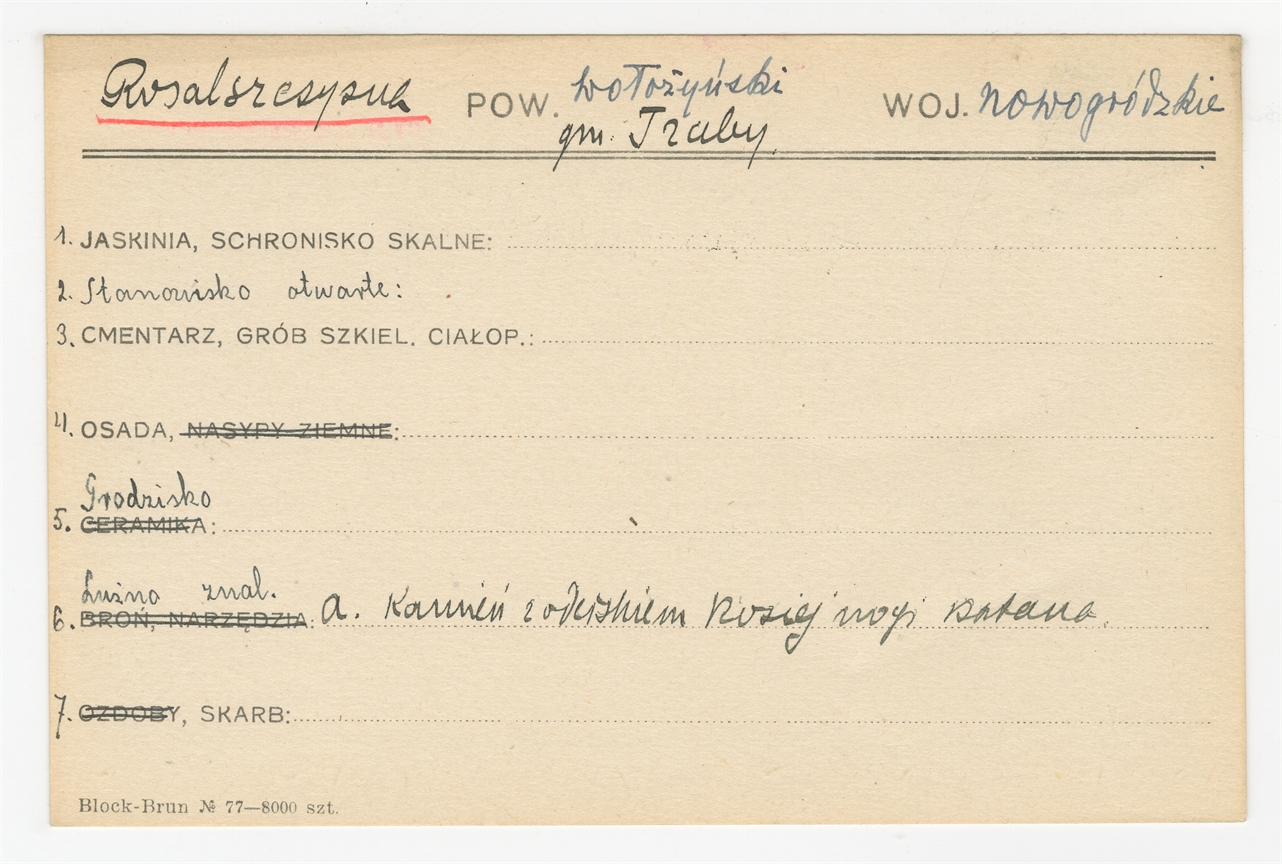 Rosalszczyzna POW. wołożyński WOJ. nowogródzkie
gm. Traby.
1. JASKINIA, SCHRONISKO SKALNE:
2. Stanowisko otwarte:
3. CMENTARZ, GRÓB SZKIEL. CIAŁOP.:
4. OSADA, NASYPY ZIEMNE:
Grodzisko
5. CERAMIKA:
Luźno znal.
6. BROŃ, NARZĘDZIA: a. Kamień z odciskiem koziej nogi szatana.
7. OZDOBY, SKARB:
Block-Brun № 77—8000 szt.